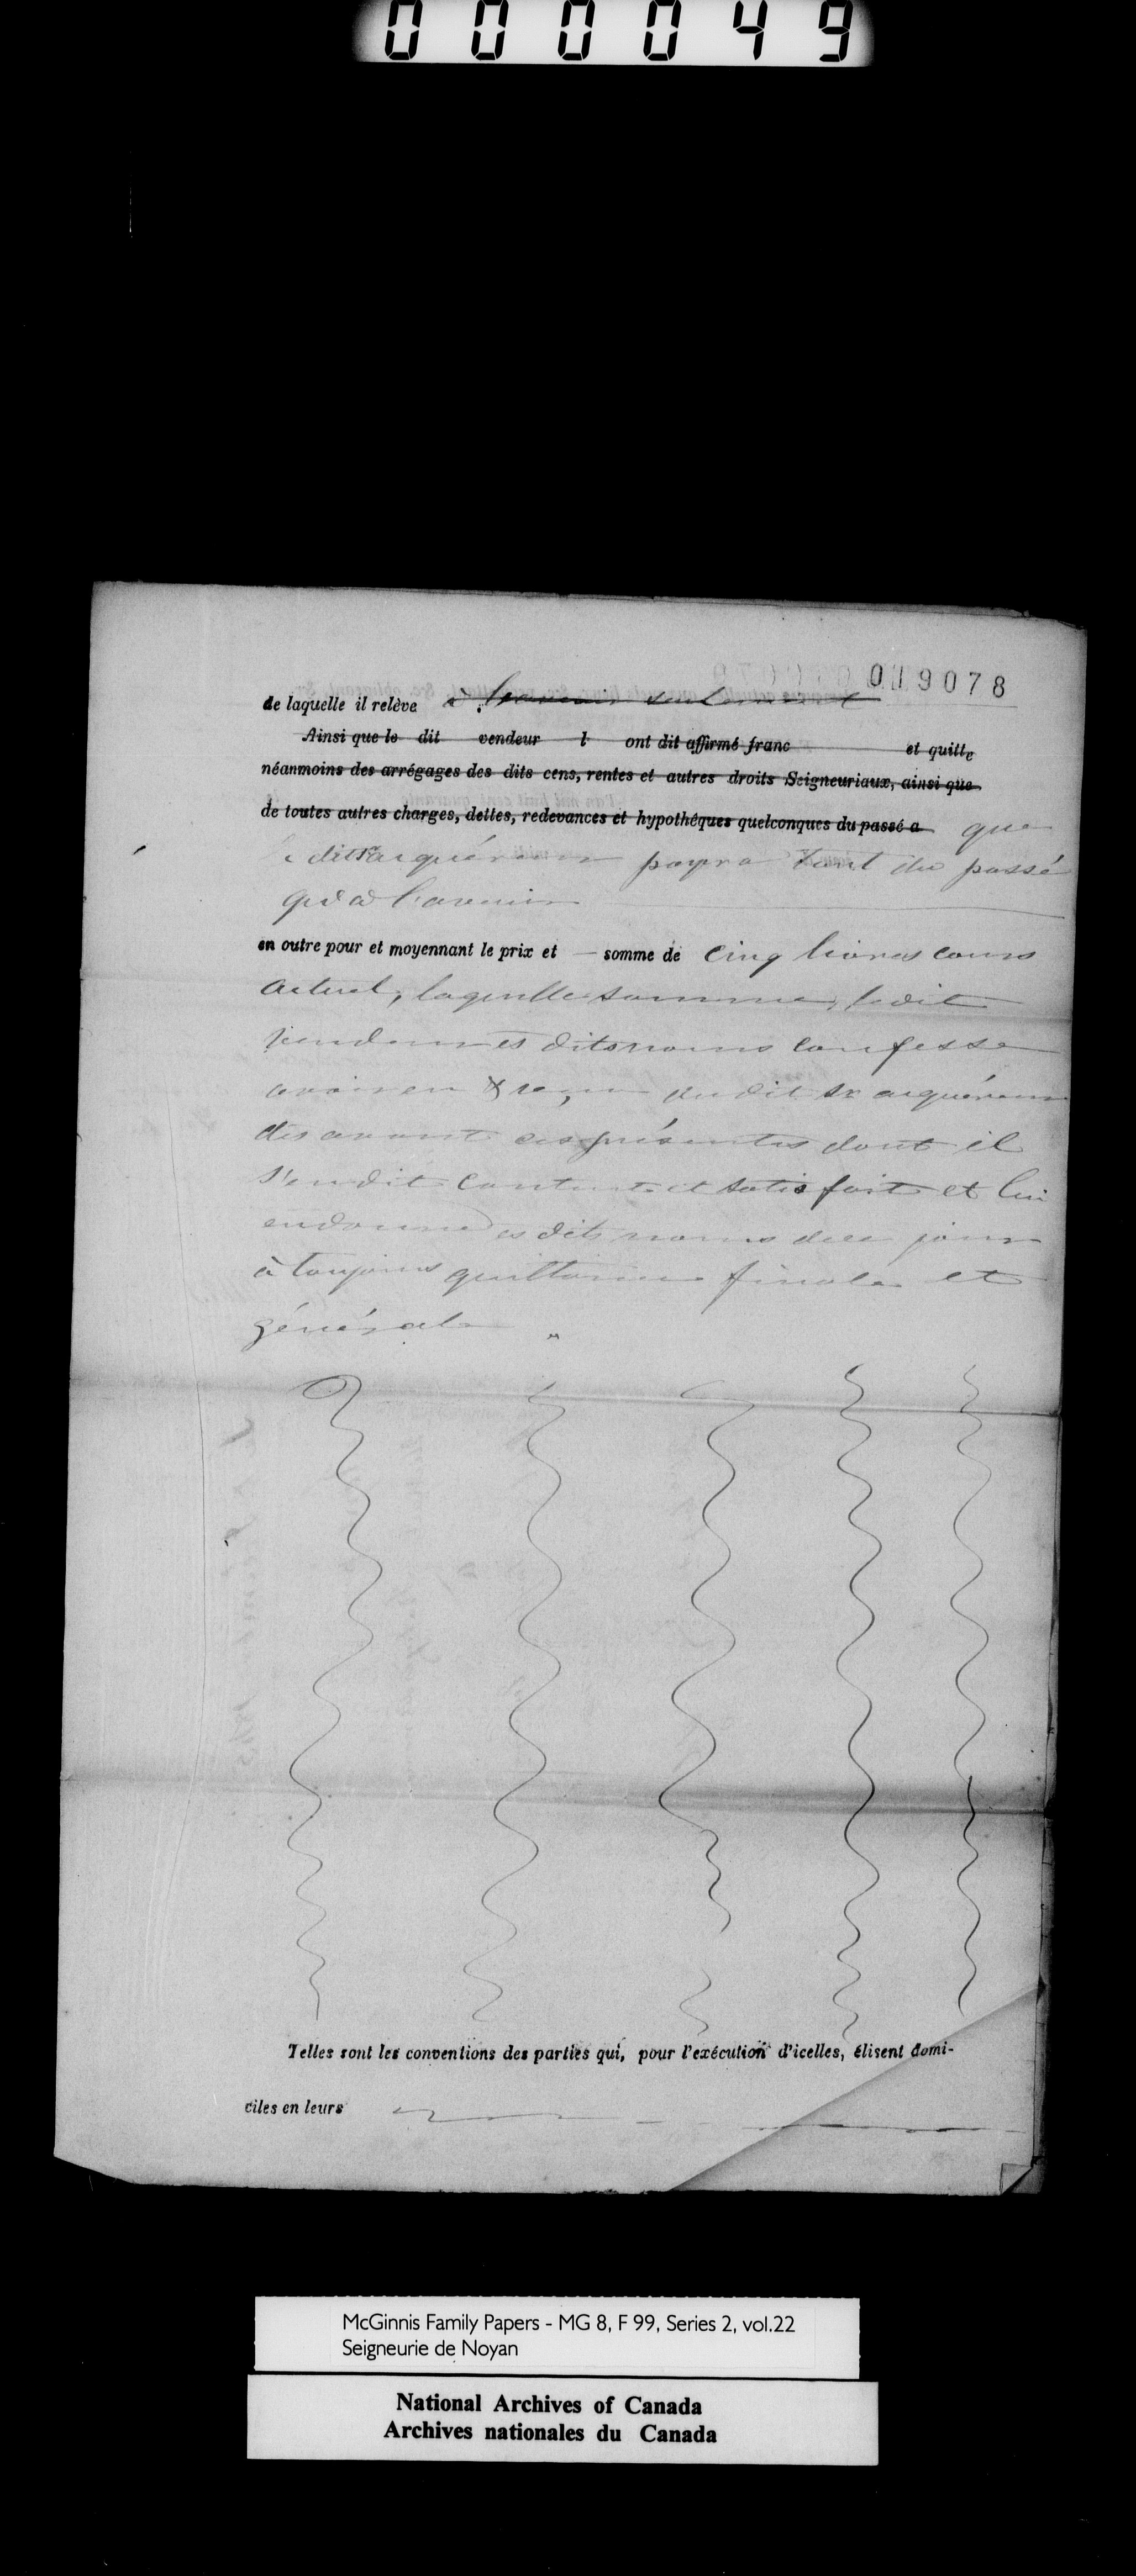 000049
019078
de laquelle il relève à l'avenir seulement
Ainsi que le dit vendeur l ont dit affirmé franc et quitte
néanmoins des arrégages des dits cens, rentes et autres droits Seigneuriaux, ainsi que
de toutes autres charges, dettes, redevances et hypothéques quelconques du passé a que
le dit Sr acquéreur payra tant du passé
qu'à l'avenir
en outre pour et moyennant le prix et somme de cinq livres cours
actuel, laquelle somme, ledit
vendeur es dits noms confesse
avoir eu & reçu du dit Sr acquéreur
dès avant ces présentes dont il
s'en dit content et satisfait et lui
en donne es dits noms de ce jour
à toujours quittance finale et
générale
Telles sont les conventions des parties qui, pour l'exécution d'icelles, élisent domi-
ciles en leurs
McGinnis Family Papers - MG 8, F 99, Series 2, vol.22
Seigneurie de Noyan
National Archives of Canada
Archives nationales du Canada